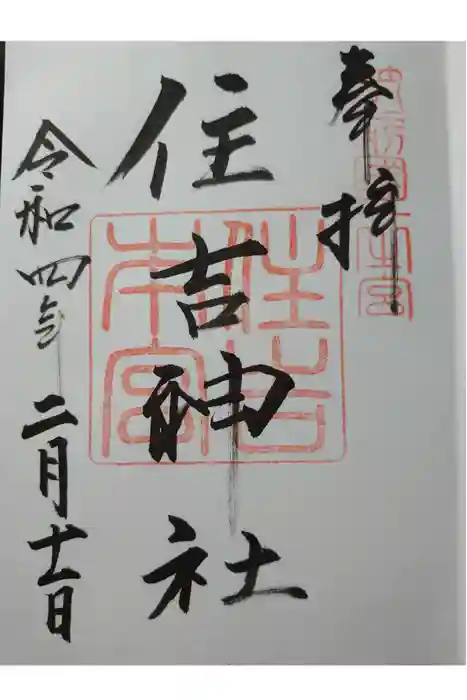 奉拝
住吉神社
住吉
本宮
令和四年二月十一日